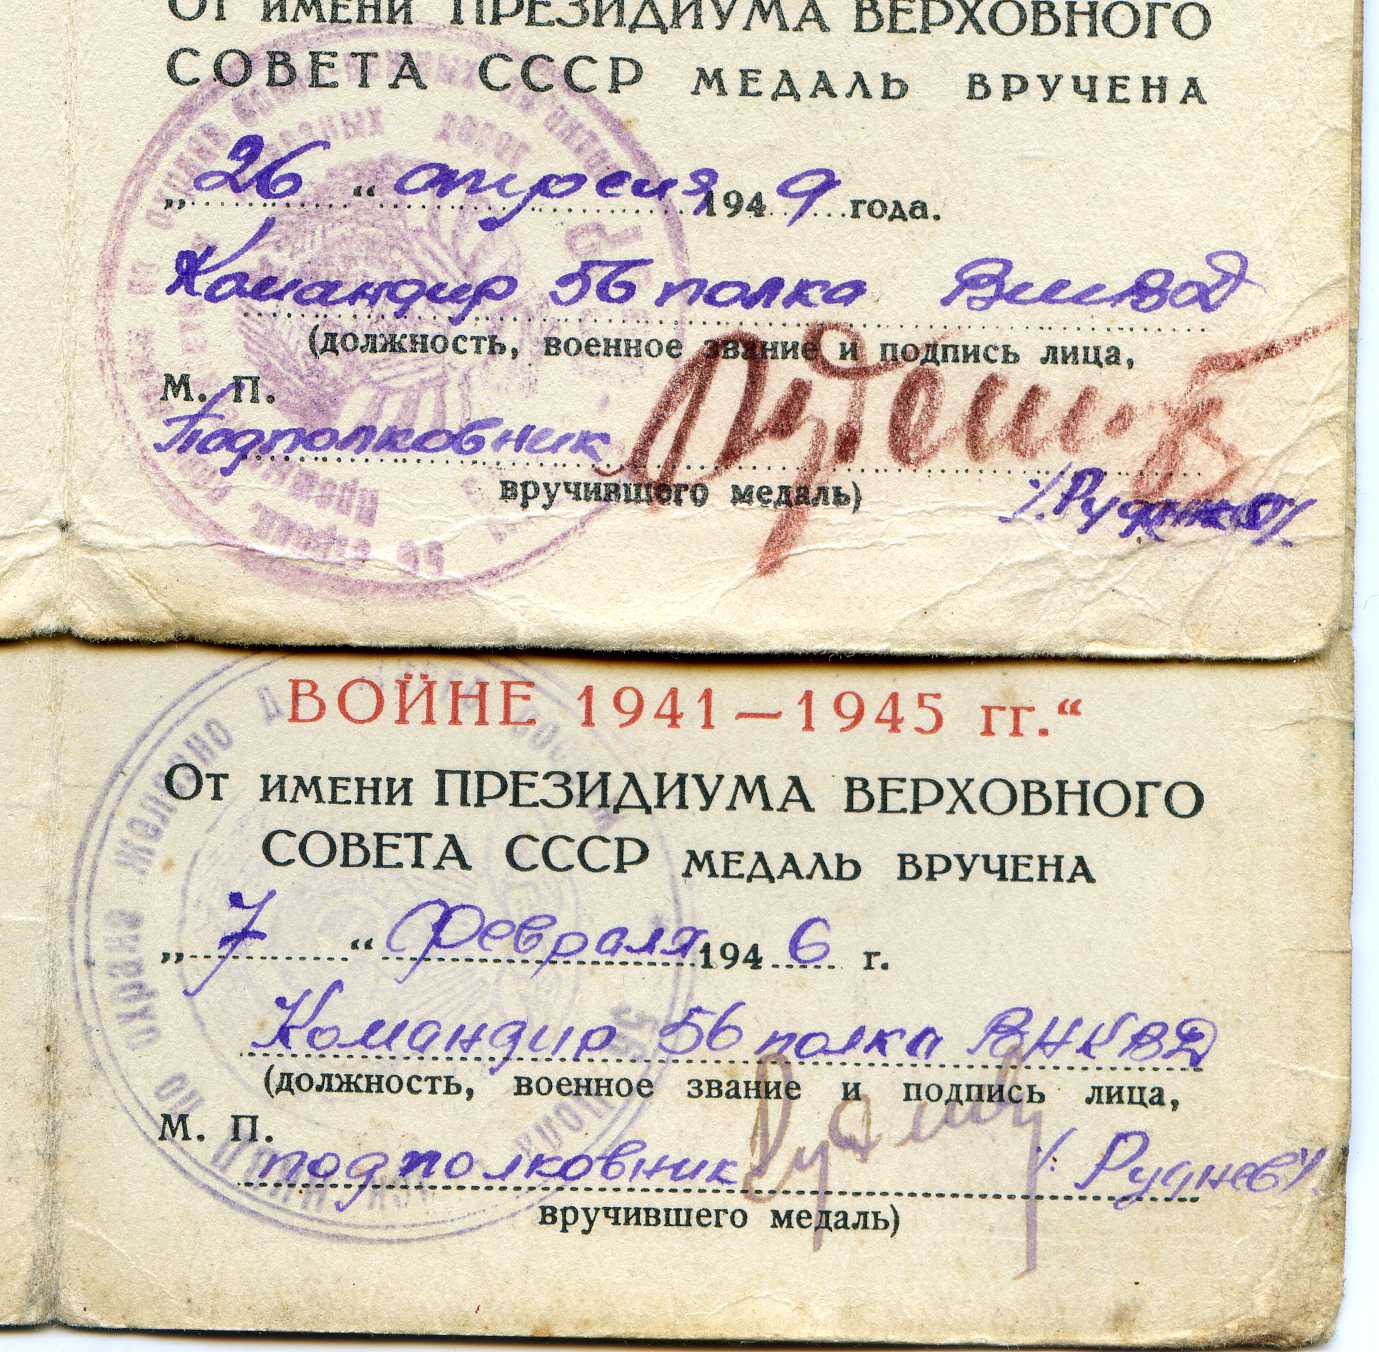 От имени ПРЕЗИДИУМА ВЕРХОВНОГО
СОВЕТА СССР МЕДАЛЬ ВРУЧЕНА
„26“ апреля 1949 года.
Командир 56 полка
(должность, военное звание и подпись лица,
М. П.
Подполковник
вручившего медаль)
ВОЙНЕ 1941—1945 гг.“
От имени ПРЕЗИДИУМА ВЕРХОВНОГО
СОВЕТА СССР МЕДАЛЬ ВРУЧЕНА
„7“ февраля 1946 г.
Командир 56 полка ВНКВД
(должность, военное звание и подпись лица,
М. П.
подполковник /Руднев/
вручившего медаль)